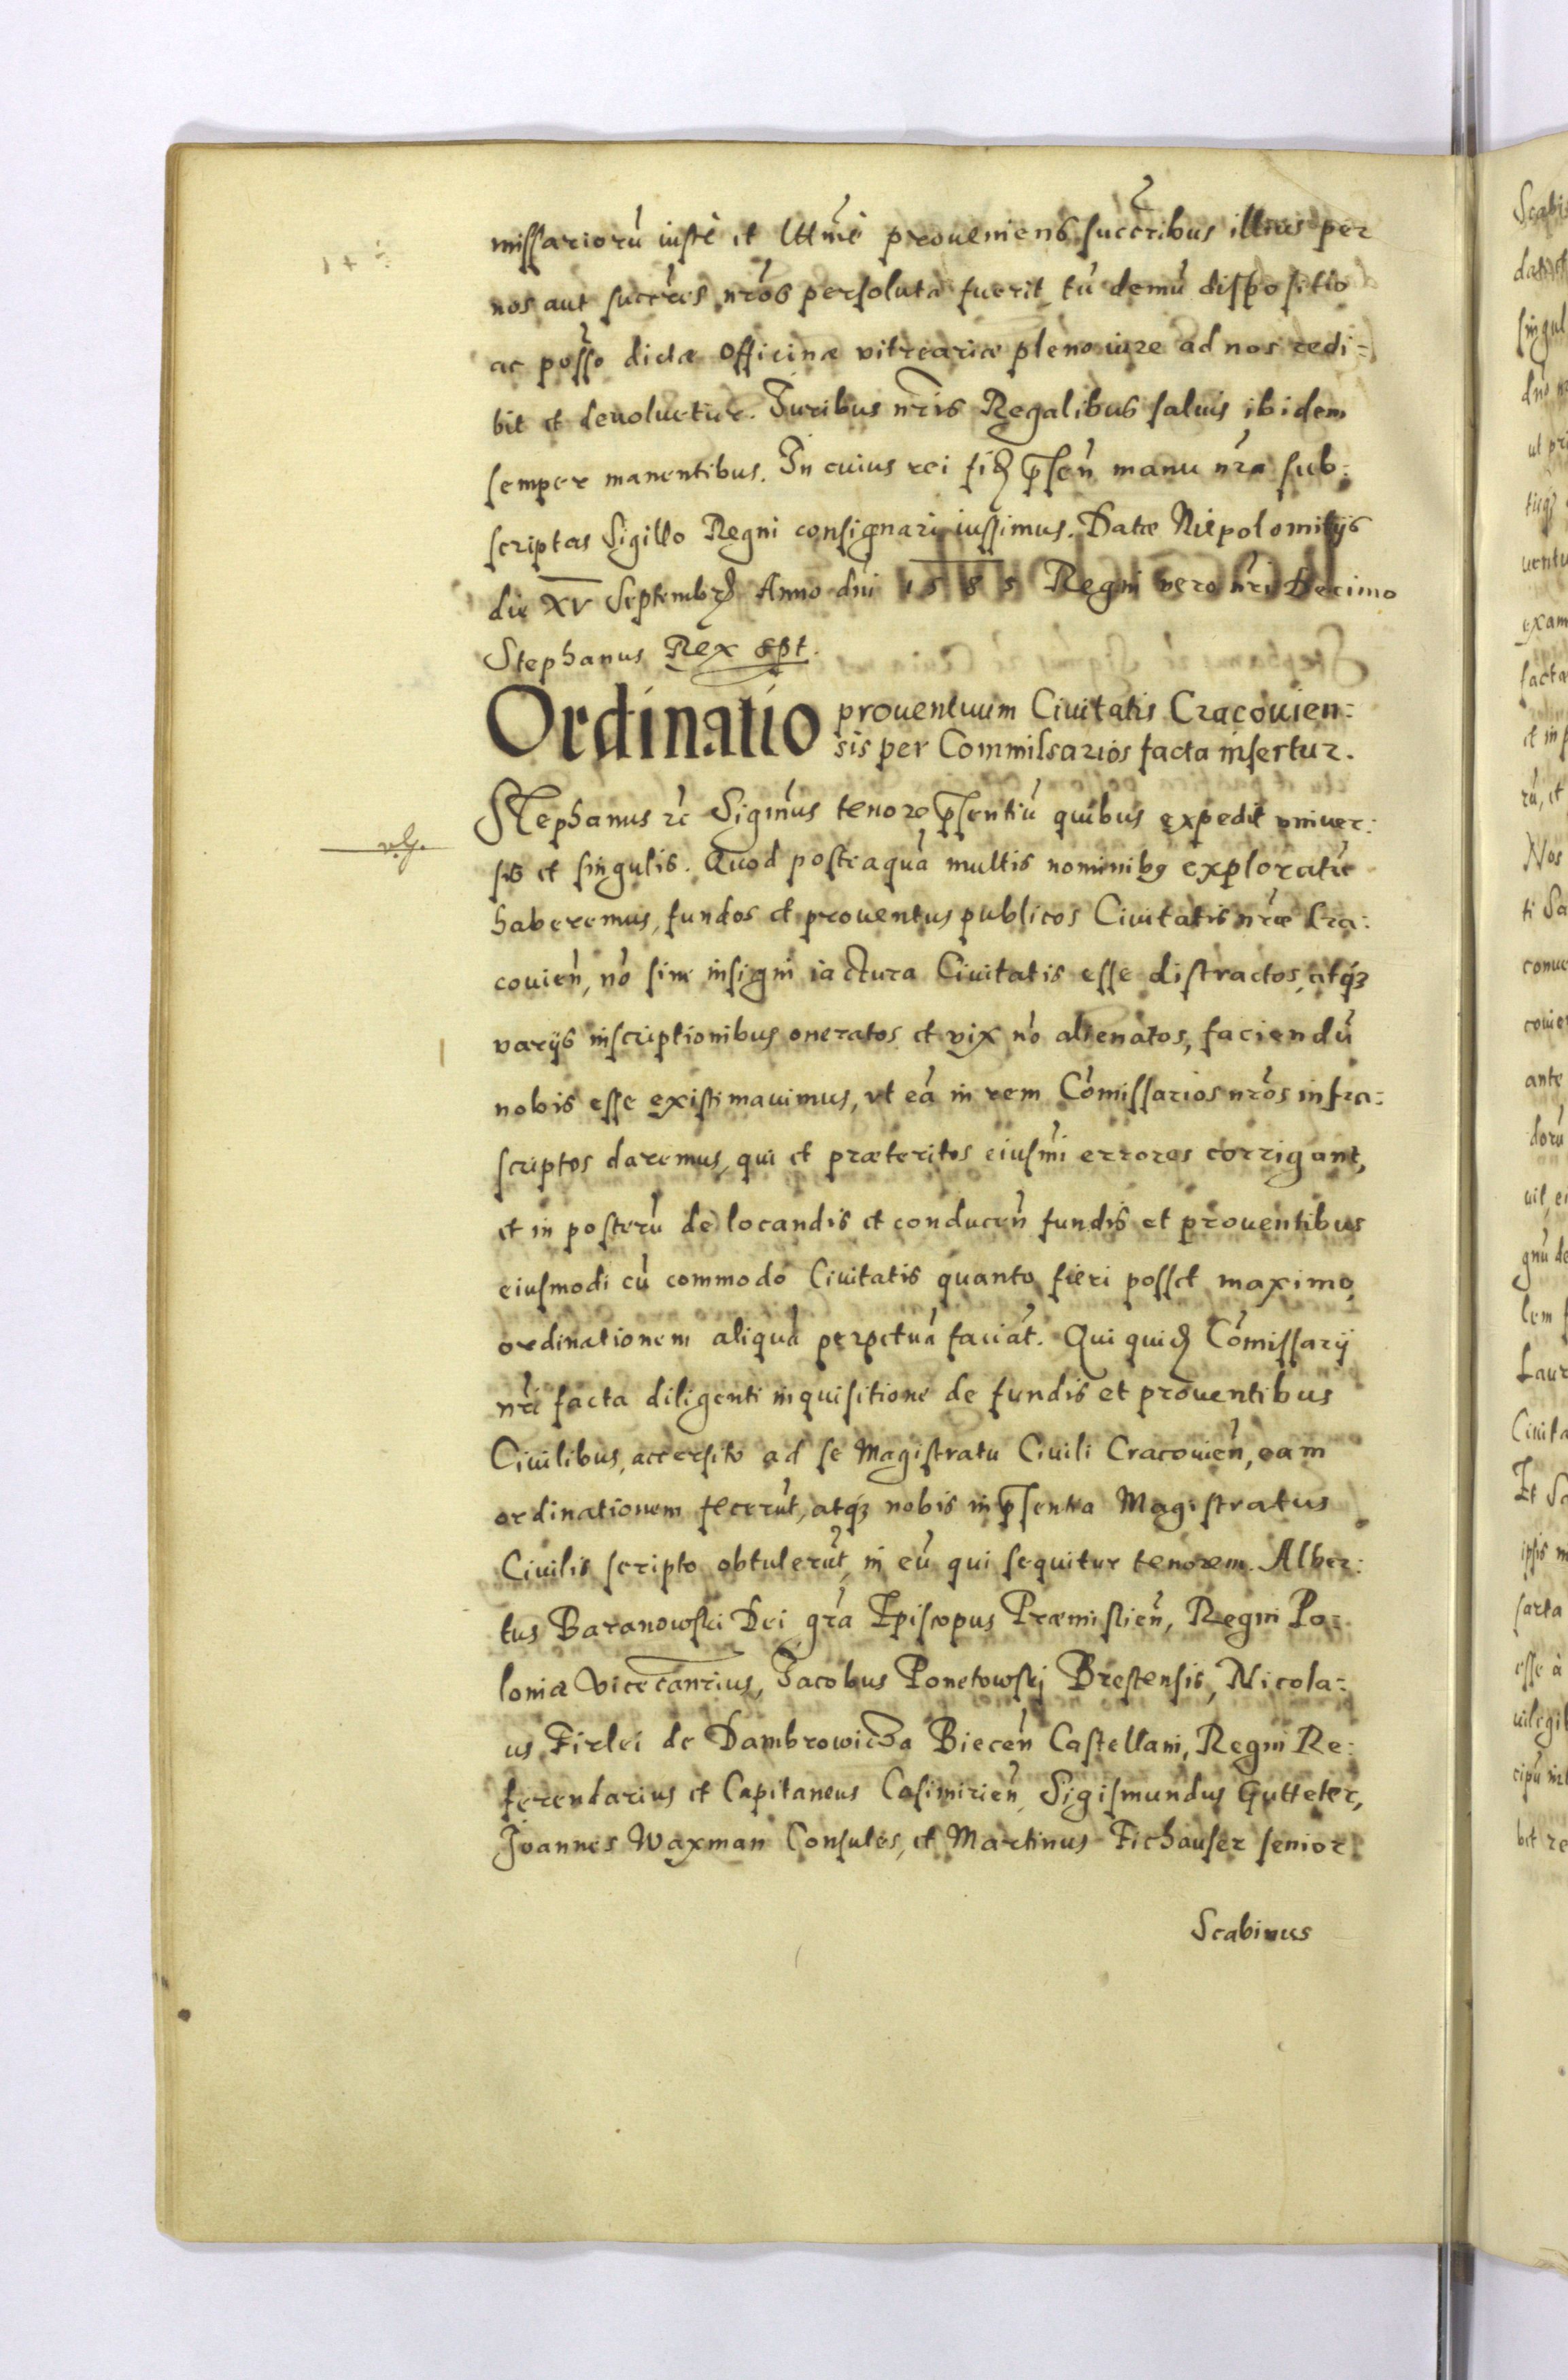 missarioru̅ iuste et lttme̅ proueniens succr̅ibus illius per
nos aut succr̅es nr̅os persoluta fuerit tu̅ demu̅ dispositio
ac posso̅ dictæ Officinæ vitreariæ pleno iure ad nos redi=
bit et deuoluetur. Juribus nr̅is Regalibus saluis ibidem
semper manentibus. In cuius rei fiđ p̅sen̅ manu nr̅a sub:
scriptas Sigillo Regni consignari iussimus. Datæ Niepolomitijs
die XV Septembrꝭ Anno dn̅i 1585 Regni vero nr̅i Decimo
Stephanus Rex sspt.
Ordinatio prouentuum Ciuitatis Cracouien:
sis per Commissarios facta insertur.
Stephanus etc̅ Sigm̅us tenore p̅sentiu̅ quibus expedit vniuer:
sis et singulis. Quod posteaqua̅ multis nominibꝰ exploratu̅
haberemus, fundos et prouentus publicos Ciuitatis nr̅æ Cra:
couien̅, no̅ sine insigni iactura Ciuitatis esse distractos, atqꝫ
varijs inscriptionibus oneratos et vix no̅ alienatos, faciendu̅
nobis esse existimauimus, vt ea̅ in rem Co̅missarios nr̅os infra:
scriptos daremus, qui et præteritos eiusm̅i errores corrigant,
et in posteru̅ de locandis et conducen̅ fundis et prouentibus
eiusmodi cu̅ commodo Ciuitatis quanto fieri posset maximo,
ordinationem aliqua̅ perpetua̅ facia̅t. Qui quiđ Co̅missarij
nr̅i facta diligenti inquisitione de fundis et prouentibus
Ciuilibus, accersito ad se Magistratu Ciuili Cracouien̅, eam
ordinationem feceru̅t, atqꝫ nobis in p̅sentia Magistratus
Ciuilis scripto obtuleru̅t, in eu̅ qui sequitur tenorem. Alber:
tus Baranowski Dei gr̅a Episcopus Præmislien̅, Regni Po=
loniæ Vicecan̅rius, Jacobus Ponetowskj Brestensis, Nicola:
us Firlei de Dambrowicza Biecen̅ Castellani, Regni Re:
ferendarius et Capitaneus Casimirien̅, Sigismundus Gutteter,
Joannes Waxman Consules, et Martinus Fichauser senior
Scabinus